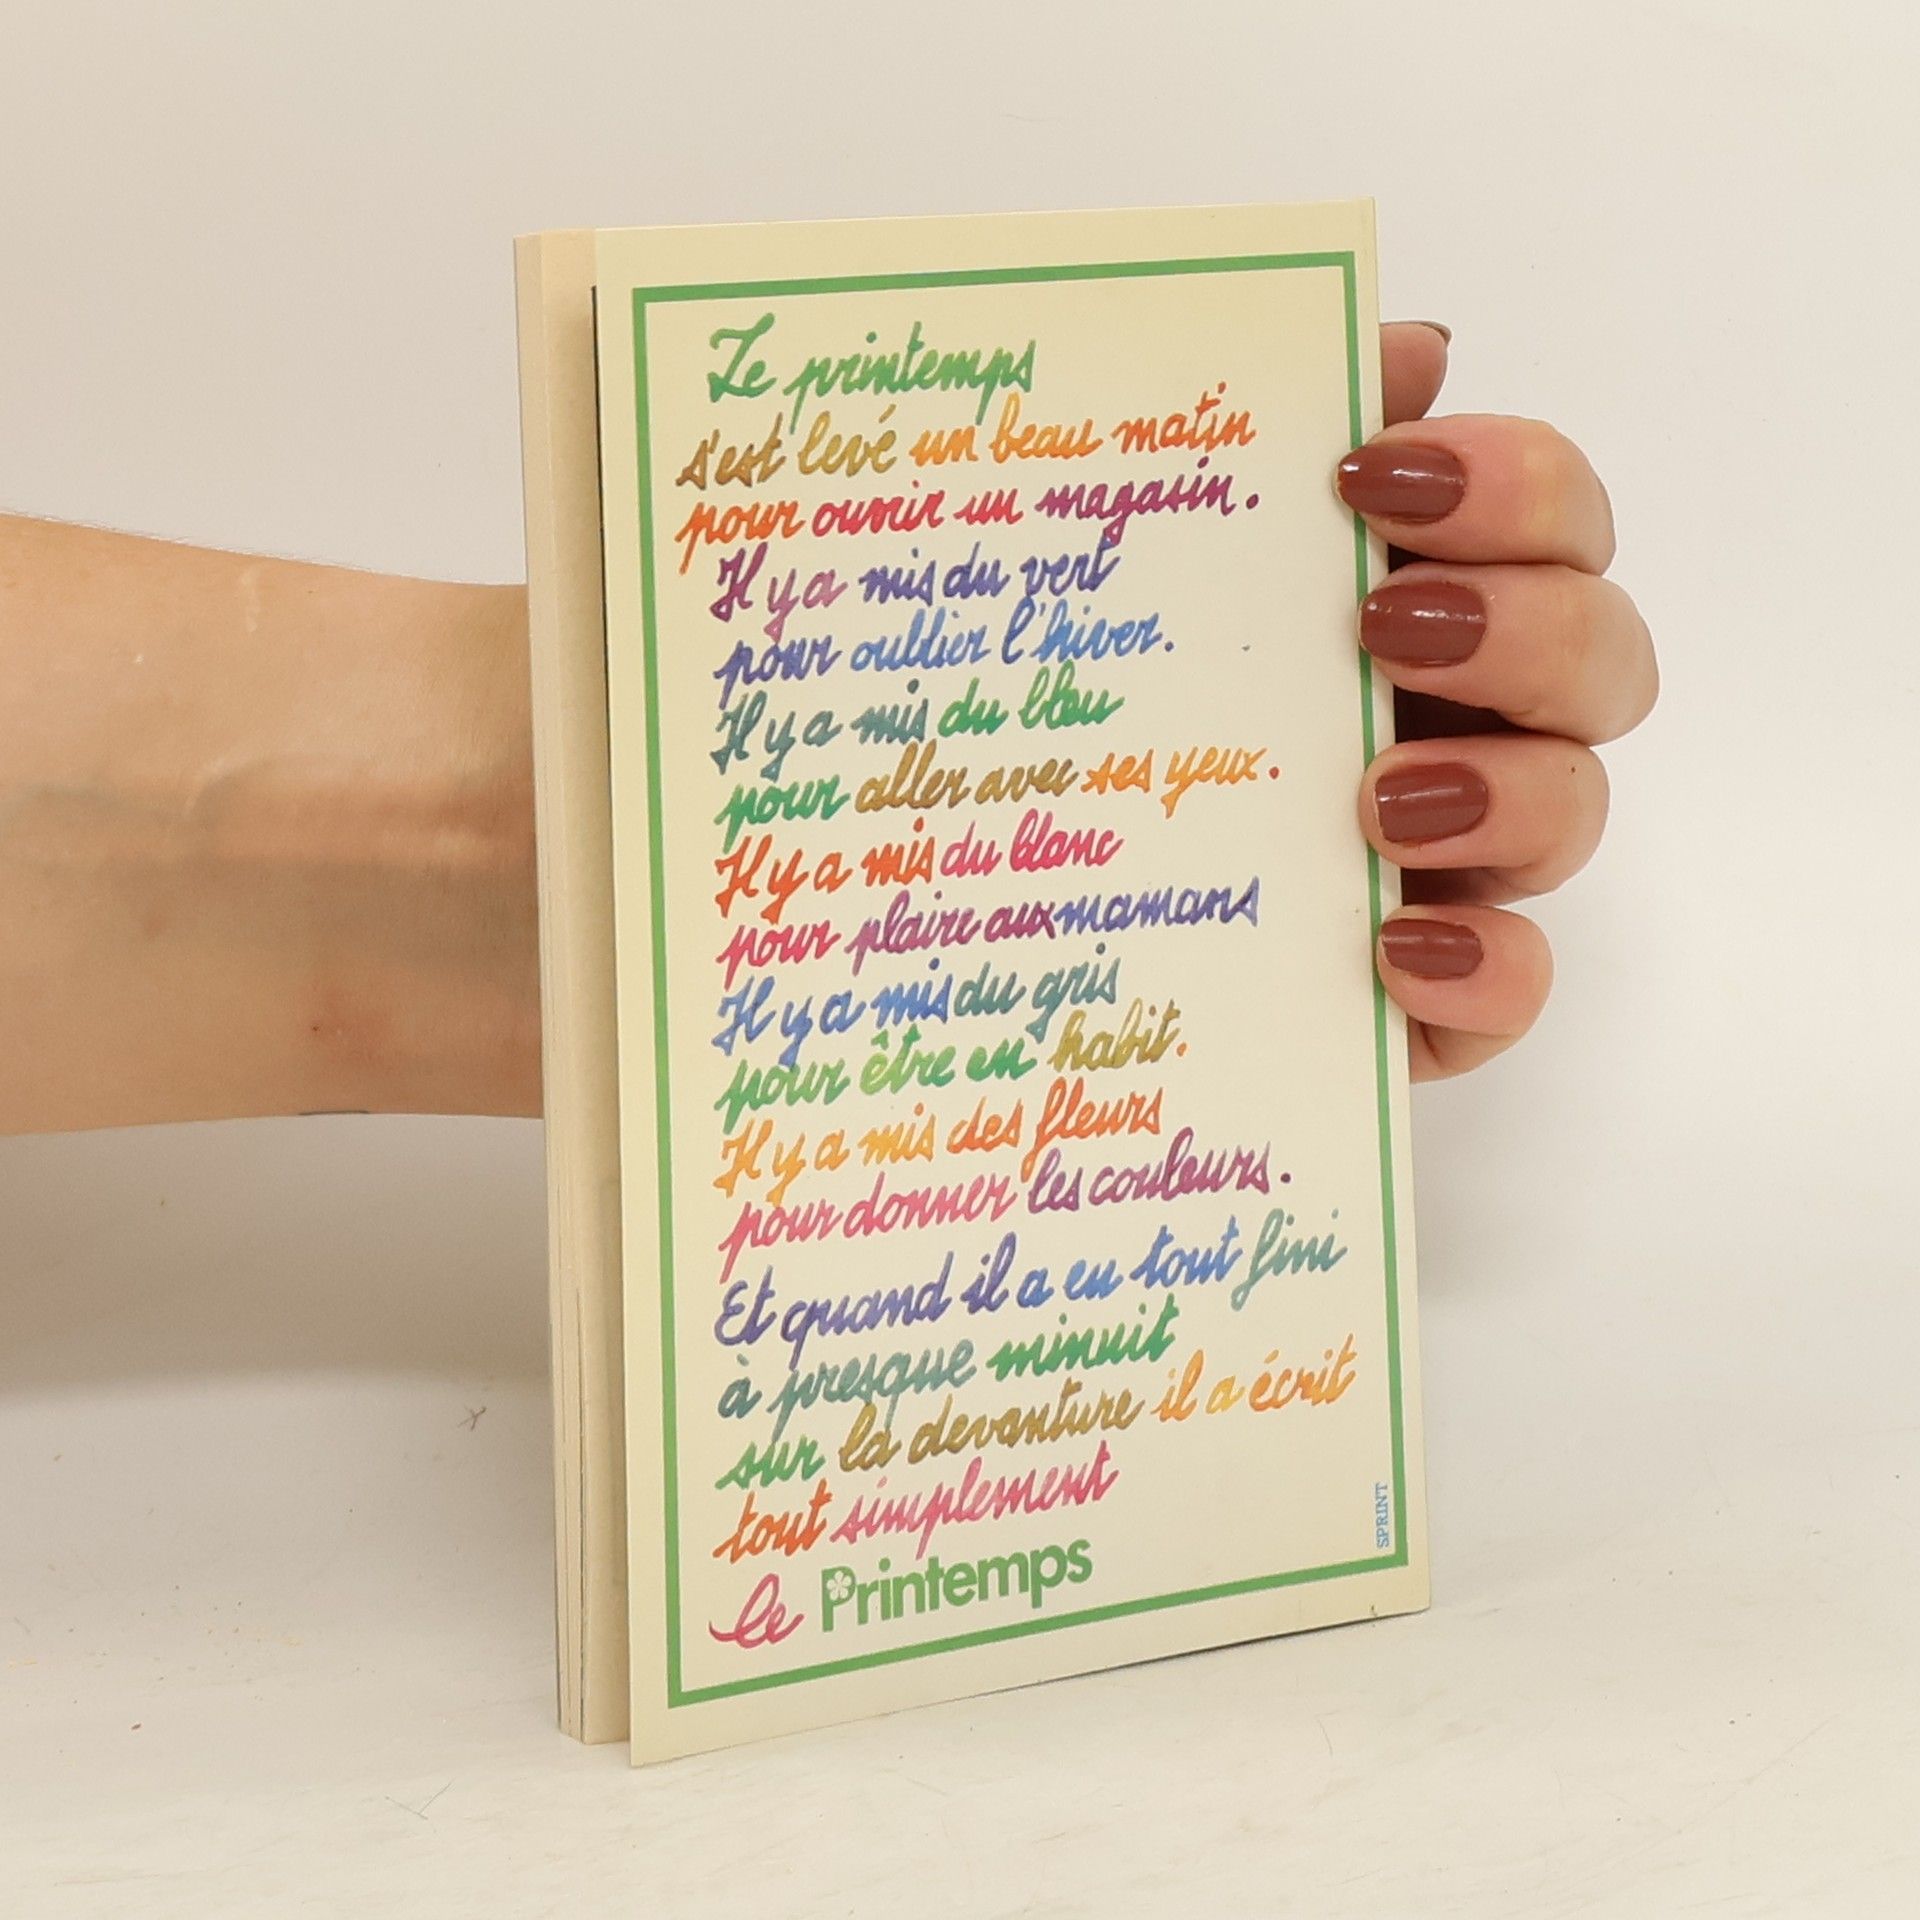 Le printemps
s'est levé un beau matin
pour ouvrir un magasin.
Il y a mis du vert
pour oublier l'hiver.
Il y a mis du bleu
pour aller avec ses yeux.
Il y a mis du blanc
pour plaire aux mamans
Il y a mis du gris
pour être en habit.
Il y a mis des fleurs
pour donner les couleurs.
Et quand il a eu tout fini
à presque minuit
sur la devanture il a écrit
tout simplement
le Printemps
SPRINT